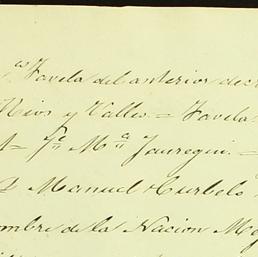 Favela del anterior decr
Rios y Valles. = Favela
Ma Jauregui. =
Manuel Curbelo
ombre de la Nacion Me